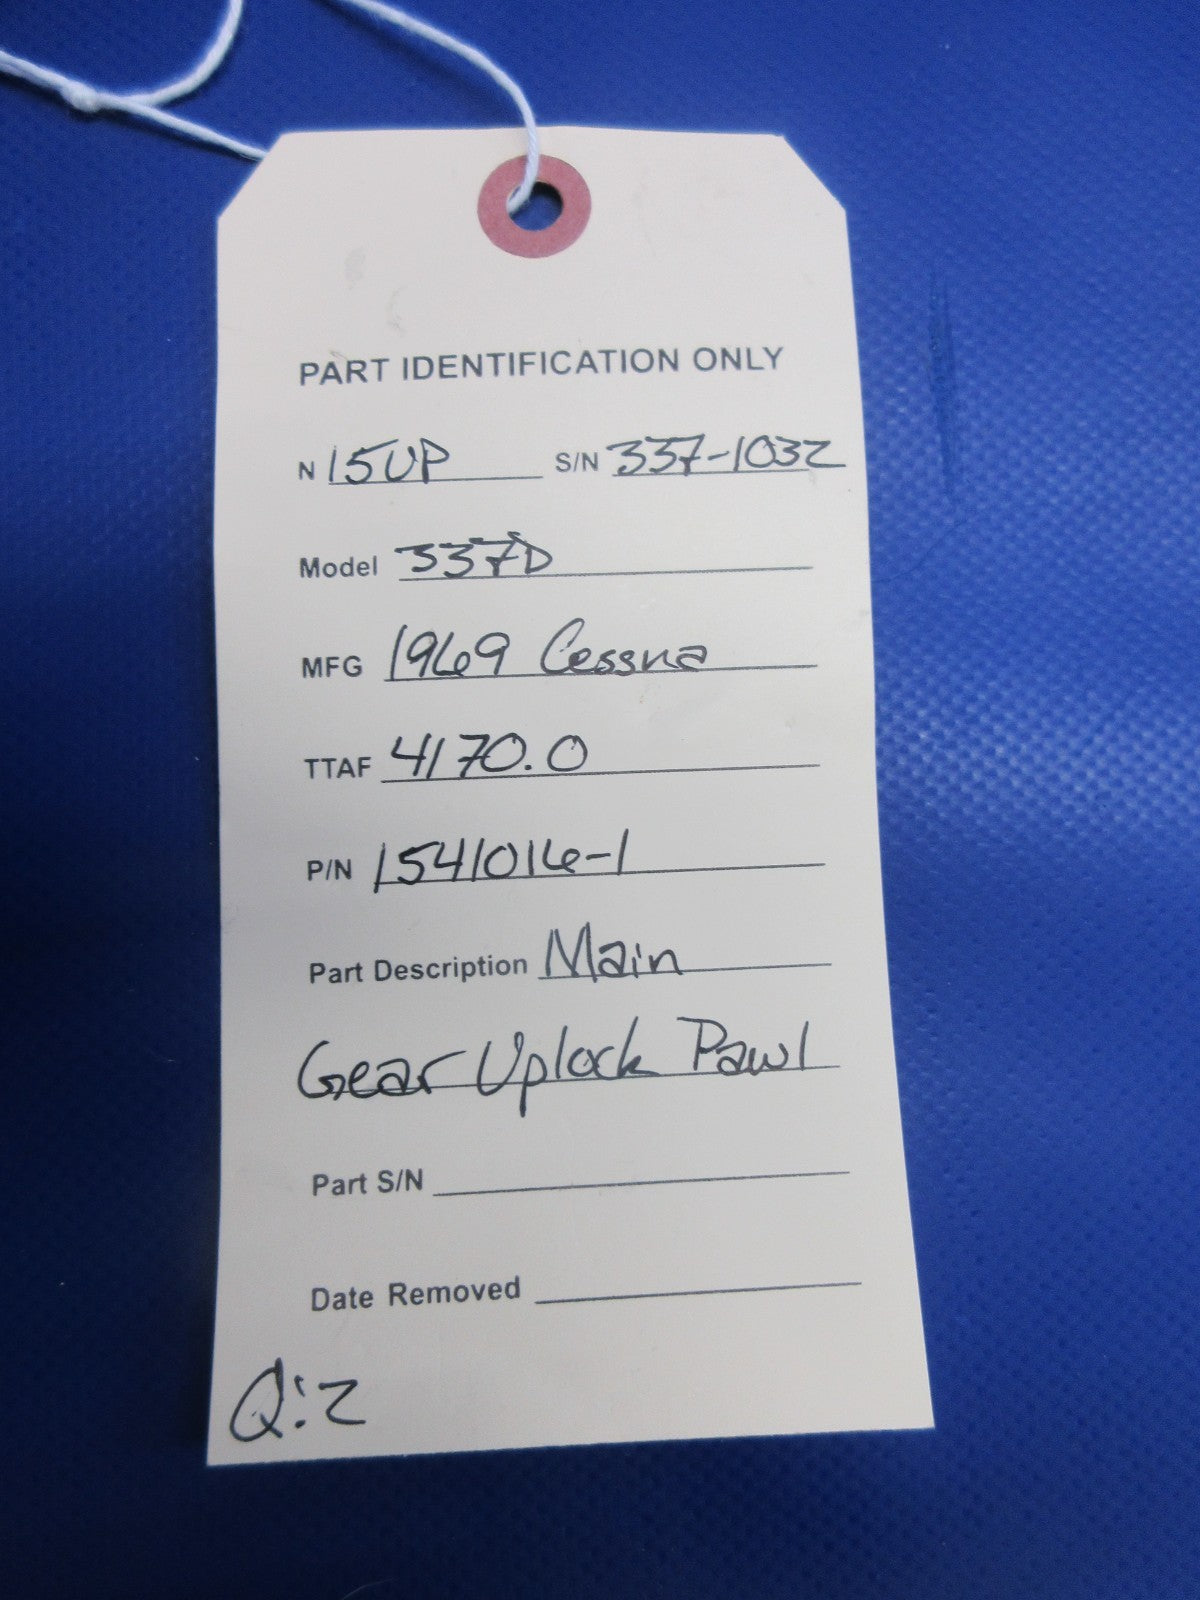 PART IDENTIFICATION ONLY
N 15UP S/N 337-1032
Model 337D
MFG 1969 Cessna
TTAF 4170.0
P/N 1541016-1
Part Description Main
Gear Uplock Pawl
Part S/N
Date Removed
Q:2